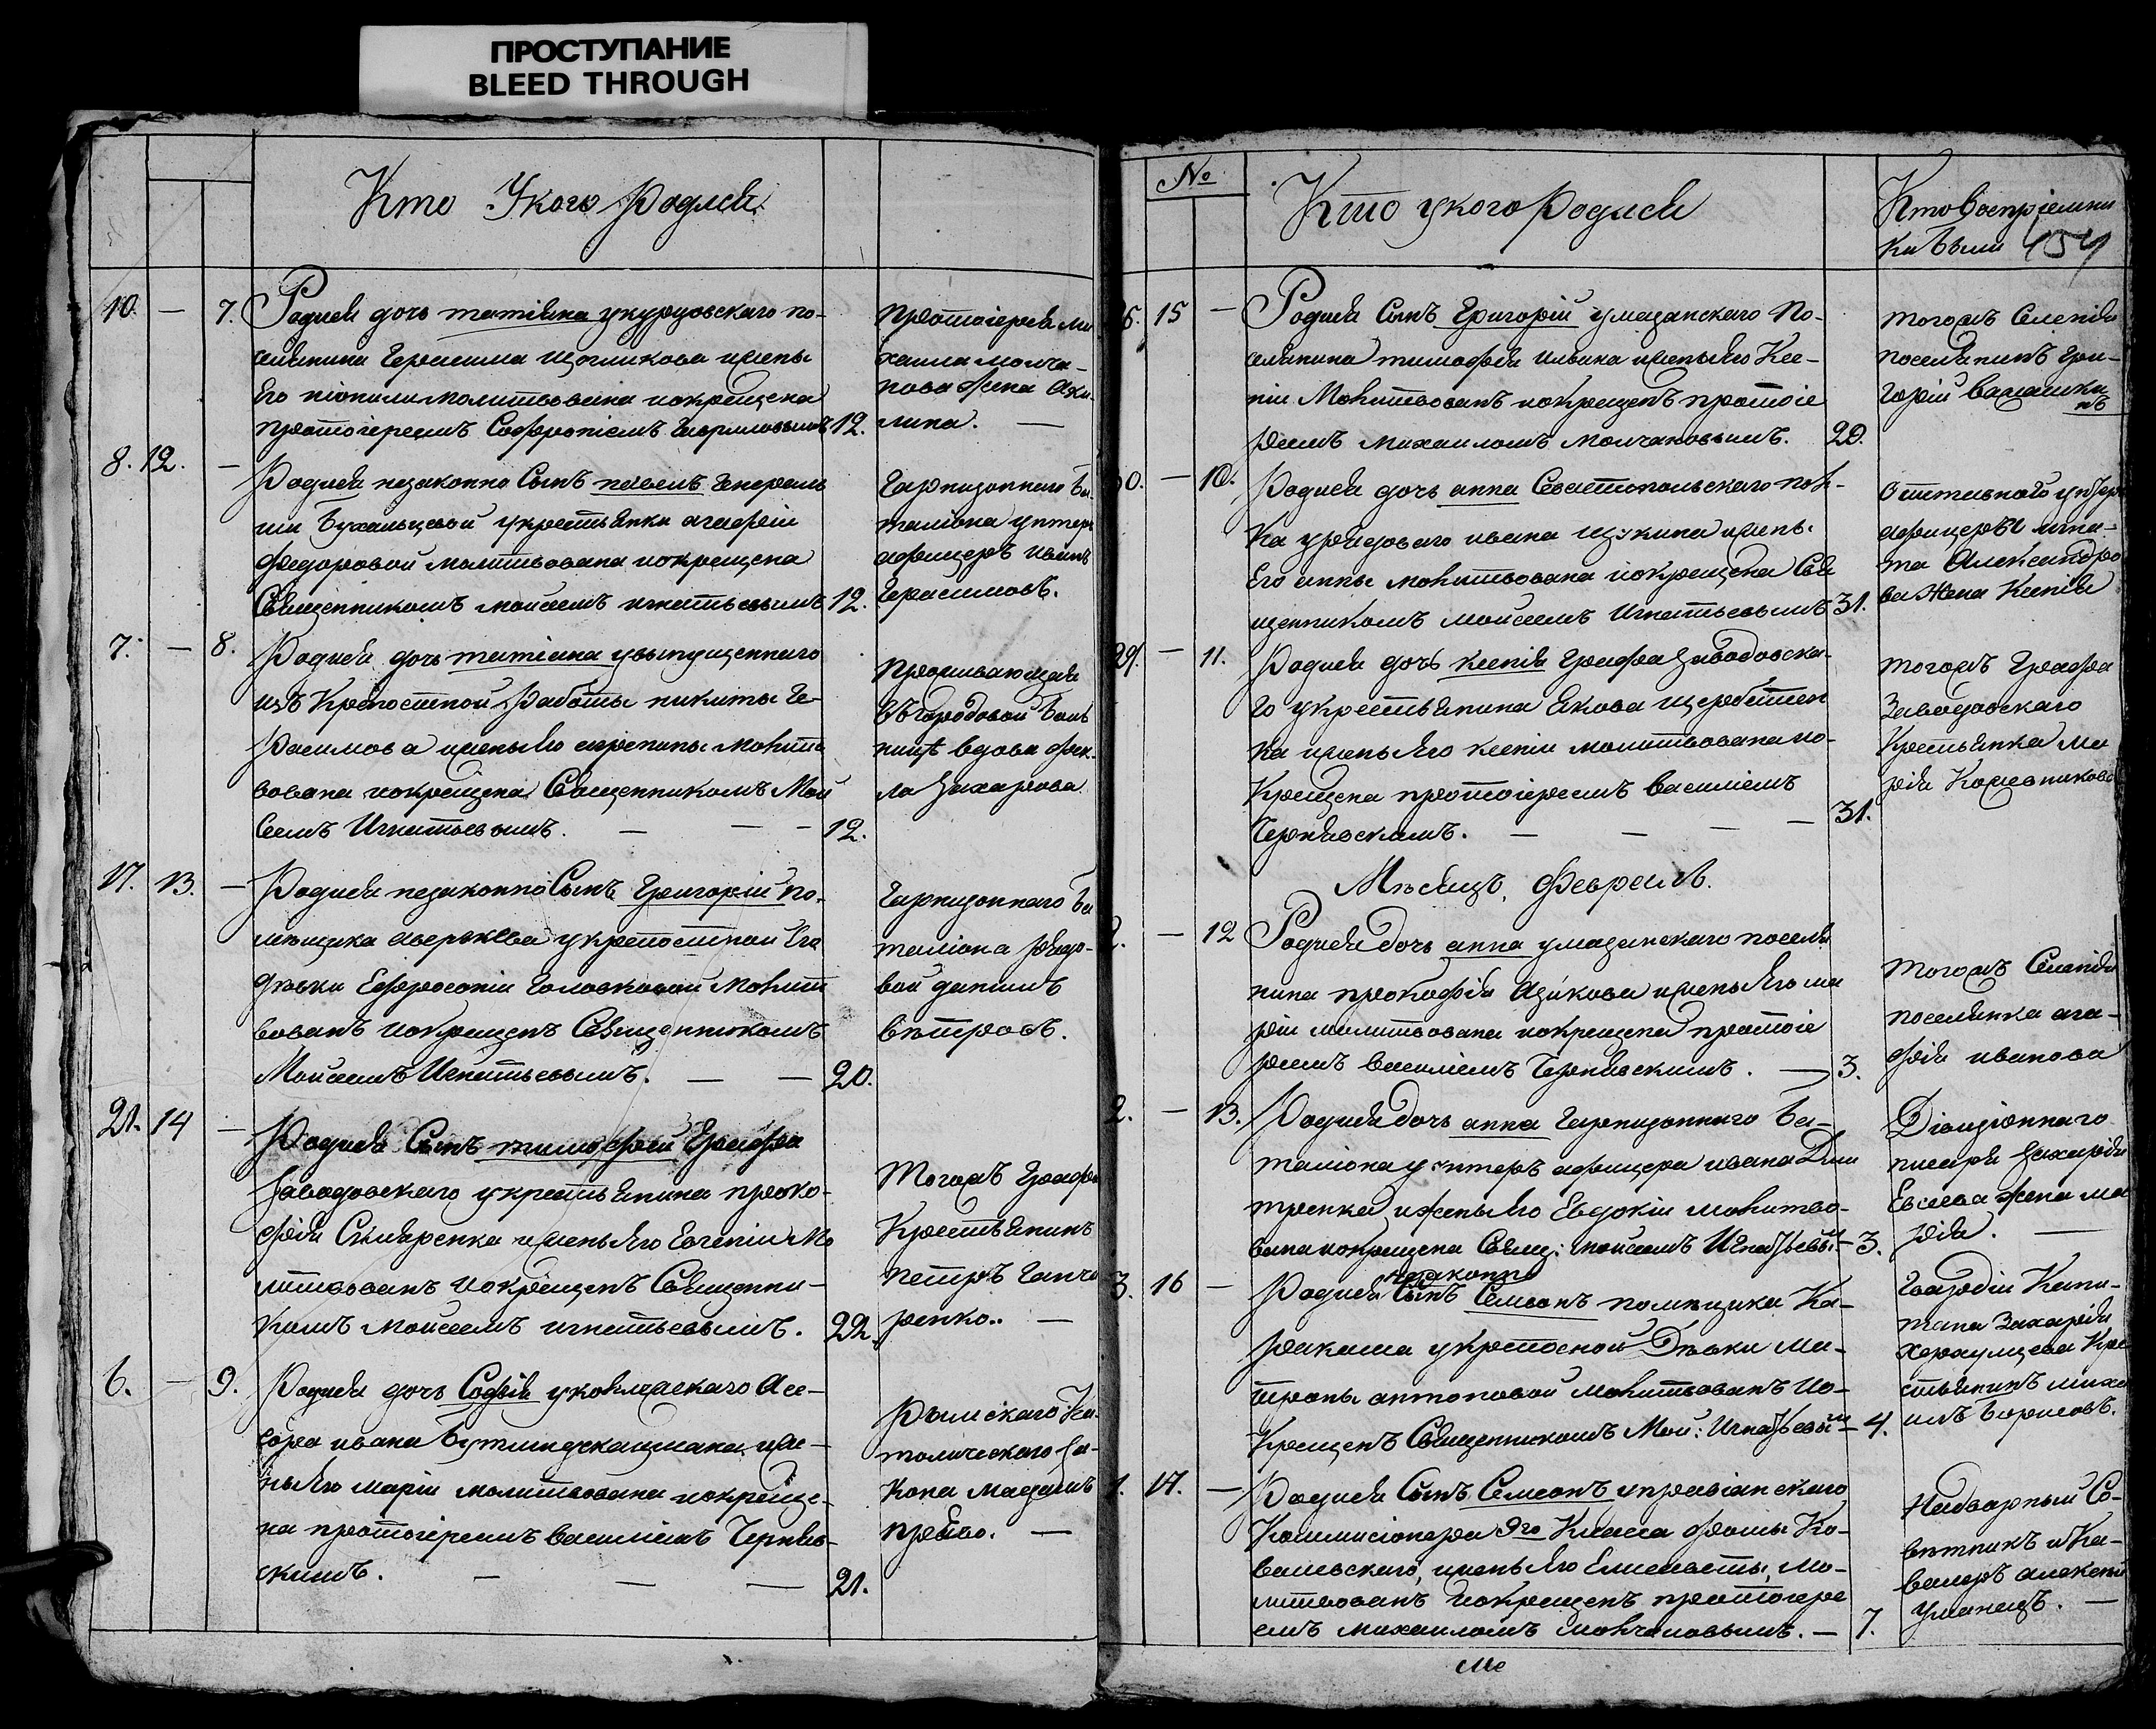 ПРОСТУПАНИЕ
BLEED THROUGH
Кто Укого Родился
10. — 7. Родися дочь татіяна укурцовскаго по-
селянина Герасима щогликова ижены
Его молитвована иокрещена
протоіереемъ Софроніемъ Гавриловымъ 12.
Протоіерея Ми
хаила молча-
нова жена Аку-
лина. —
8. 12. — Родися незаконно Сынъ павелъ Генераль
ши Бухальцовой укрестьянки агафіи
Федоровой молитвована иокрещена
Священникомъ моисеемъ игнатьевымъ 12.
Гарнизоннаго ба-
таліона унтеръ
афицеръ иванъ
Герасимовъ.
7. — 8. Родися дочь татіана увыпущеннаго
изъ Крепостной работы никиты Ге-
расимова иженыЯго агрепины молит
вована иокрещена Священникомъ Мои
сеемъ Игнатьевымъ. — — — 12.
Проживающая
Въгородовой боль
ницѣ вдова фек-
ла Захарова
17. 13. — Родися незаконно Сынъ Григорій по-
мещика аверькіева украпостной Его
девки Ефросоніи Головковой Молит
вованъ иокрещенъ Священникомъ
Моисеемъ Игнатьевымъ. — — 20.
Гарнизоннаго ба
таліона рядо-
вой данилъ
вѣтровъ.
21. 14 — Родися Сынъ тимофей Графа
Заводовскаго укрестьянина проко-
фія Скляренка иженыЯго Евгеніи Мо
литвованъ иокрещенъ Священни-
комъ Моисеемъ игнатьевымъ. 22.
Тогожъ Графа
Крестьянинъ
петръ Ганча
ренко.. —
6. — 9. Родися дочь Софія уколежскаго Асе-
сора ивана иже-
ныЯго маріи молитвована иокреще-
на протоіереемъ василіемъ Черняв-
скимъ. — — — 21.
Рымскаго Ка-
толическаго За-
кона мадамъ
№
Кто укогоРодися
Кто Воспріемни
ки были 454
15 — Родися Сынъ Григорій умазанскаго По-
селянина тимофея ильина иженыЯго Ксе-
ніи Молитвованъ иокрещенъ протоіе
реемъ михаиломъ молчановымъ. 29.
тогожъ Селенія
поселянинъ Гри-
горій валашки
нъ
30. — 10. Родися дочь анна Севастопольскаго пол-
ка урядоваго ивана щукина ижены
Его анны молитвована иокрещена Свя
щенникомъ моисеемъ Игнатьевымъ 31.
Отставнаго унтеръ
афицера игна-
та Александро
ва Жена Ксенія
29. — 11. Родися дочь ксенія Графа Заводовска-
го укрестьянина Якова щербатен
ка иженыЯго ксеніи молитвована ио-
Крещена протоіереемъ василіемъ
Чернявскимъ. — — — — 31.
тогожъ Графа
Заводовскаго
Крестьянка Ма
рія Кожевникова
Мѣсяцъ, Февраль.
2. — 12 Родися дочь анна умазанскаго поселя
нина прокофія Азикова иженыЯго ма
ріи молитвована иокрещена протоіе
реемъ василіемъ Чернявскимъ. — 3.
тогожъ Селенія
поселянка ага-
фія иванова
2. — 13. Родися дочь анна Гарнизоннаго ба-
таліона унтеръ афицера ивана Дми
тренка ижены Яго Евдокіи молитво-
вана иокрещена Свящ: моисеемъ Игнатьевым — 3.
Дивизіоннаго
писаря Захарія
Евсеева жена ма
рія. —
3. 16 — Родися незаконно Сынъ Семеонъ помещика Ка-
ракаша укрепосной Девки Ма-
троны антоновой молитвованъ Ио-
Крещенъ Священникомъ Мои: Игнатьевым — 4.
Гвардіи Капи-
тана Захарія
Херхулидзева Кре
стьянинъ миха
илъ борисовъ.
1. 17. — Родися Сынъ Семеонъ упровіанскаго
Коммисіонера 9го Класса фомы Ко-
валевскаго, иженыЯго Елисаветы, Мо-
литвованъ иокрещенъ протоіере
емъ михаиломъ Молчановымъ. — 7.
Надворный Со-
вѣтникъ и Ка-
валеръ алексей
Уманецъ. —
Ме